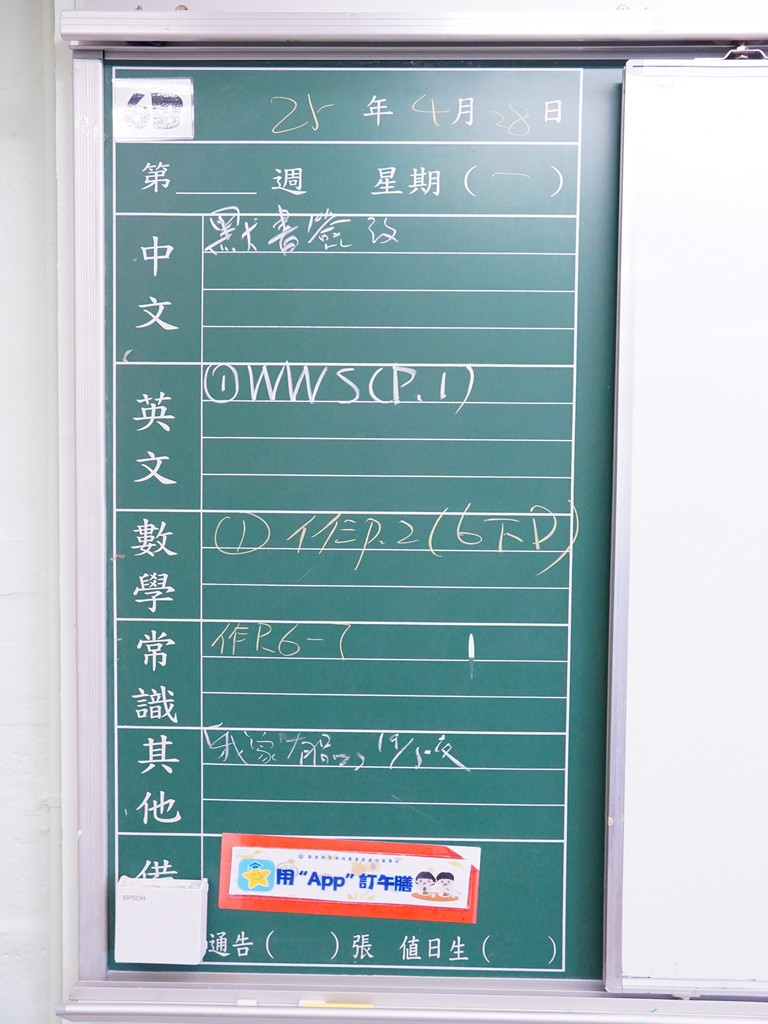 6D
25 年 4 月 28 日
第____週 星期（一）
中文
默書簽改
英文
①WWS(P.1)
數學
① 作P.2(6下D)
常識
作P.6-7
其他
「我家
19/5交
備
用“App”訂午膳
EPSON
通告（ ）張 值日生（ ）